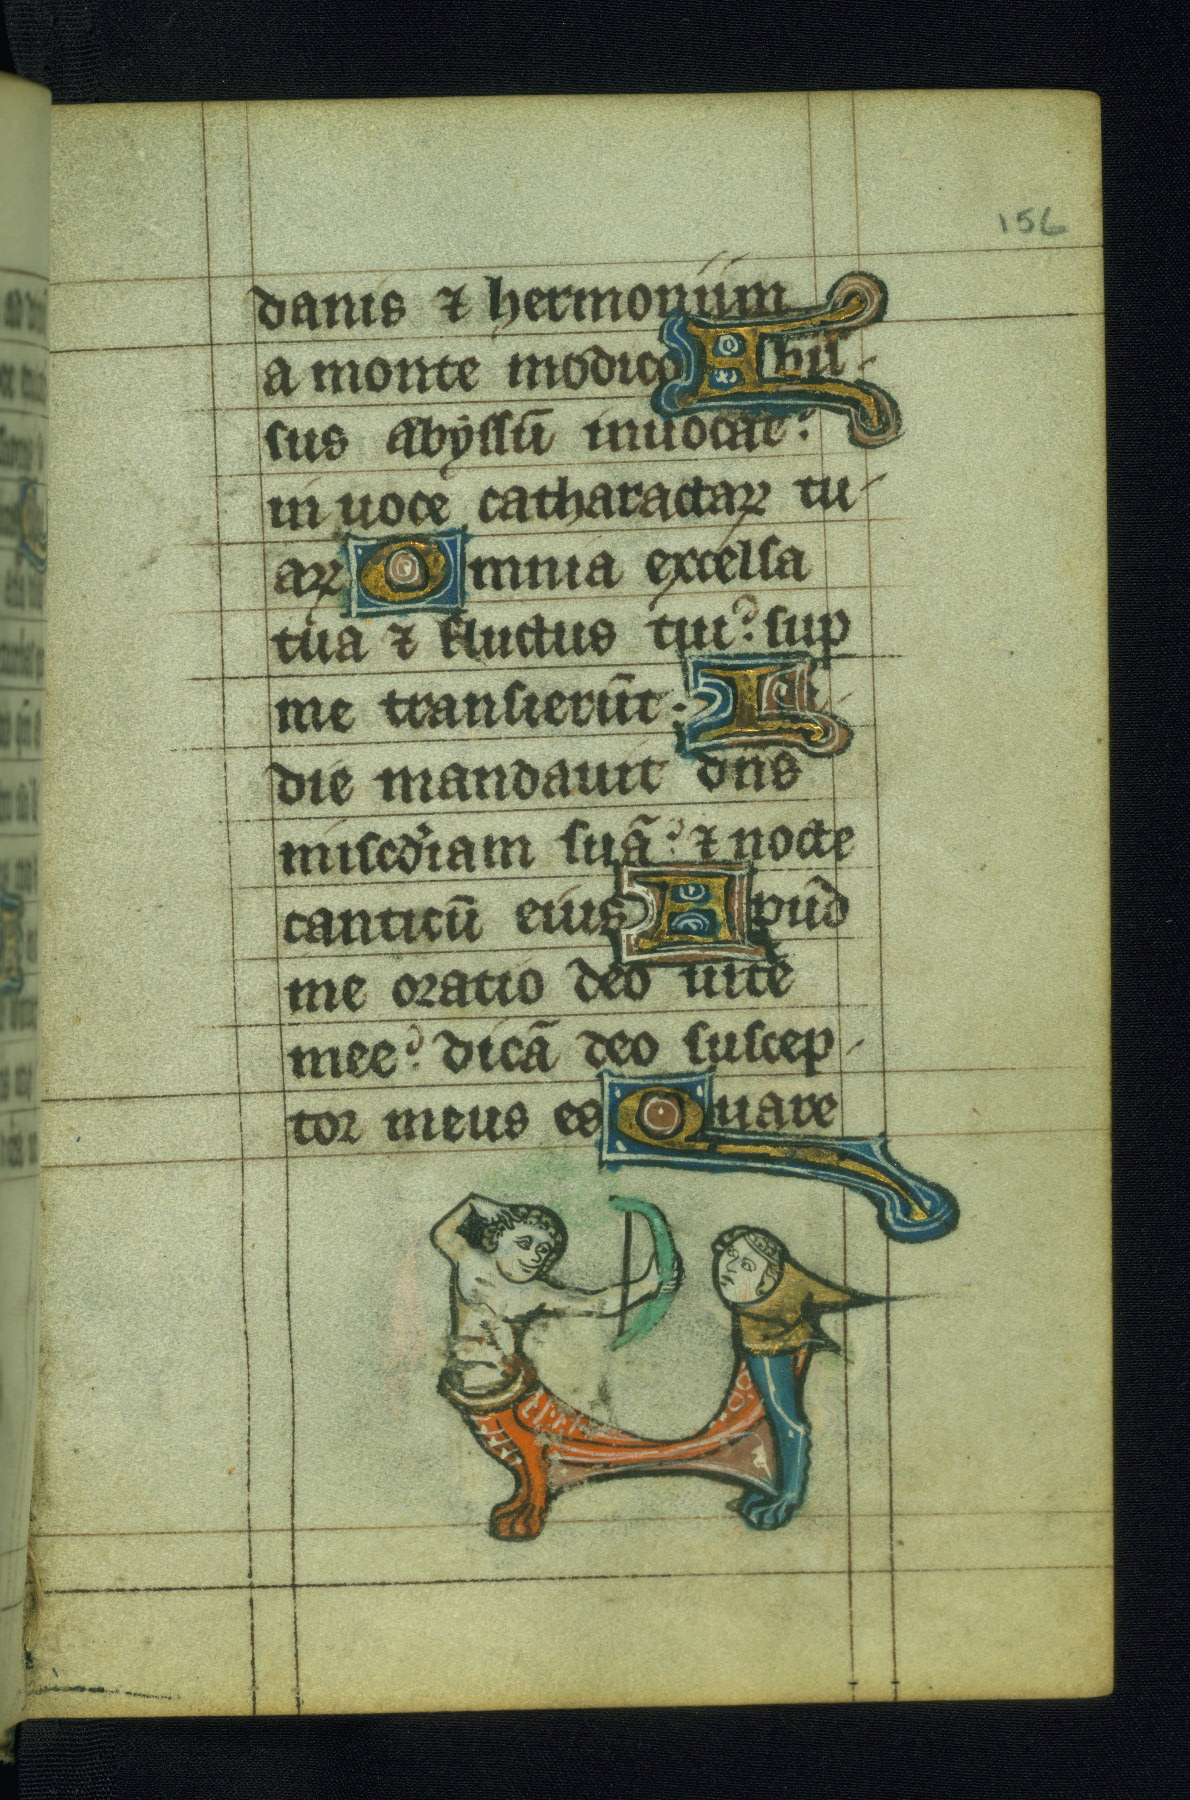 156
danis ⁊ hermoniim
a monte modico Abis-
sus abyssū inuocat:
in uoce catharactaꝝ tu-
aꝝ Omnia excelsa
tua ⁊ fluctus tui: sup
me transierūt. In
die mandauit dn̄s
misc̄diam suā: ⁊ nocte
canticū eius Apud
me oratio deo uite
mee: dicā deo suscep-
tor meus es Quare